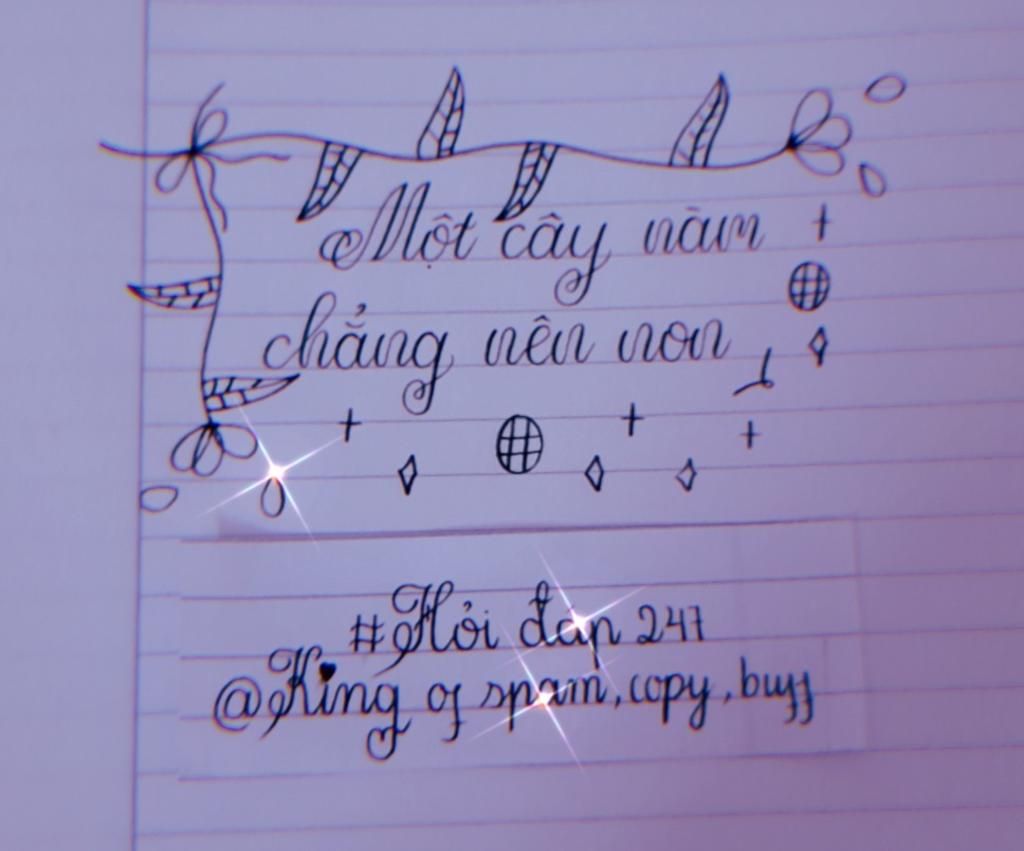 Một cây nằm
chẳng nên non
#Hỏi đáp 247
@King of spam, copy, buff